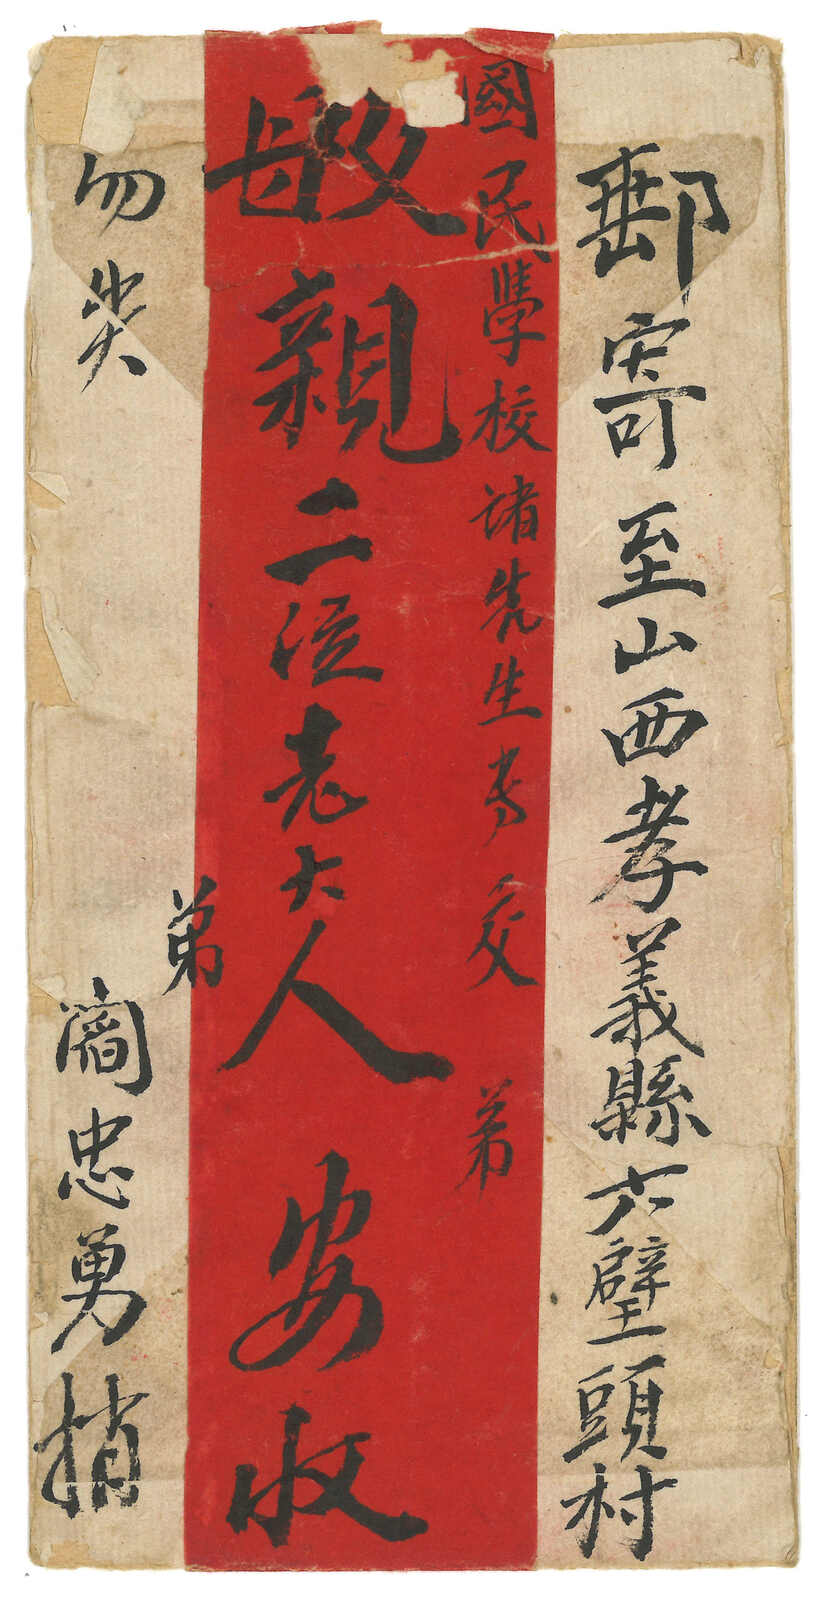 郵寄至山西孝義縣六壁頭村
國民學校諸先生专交 弟
父母親二位老大人 安收
弟
勿失 忠勇捎